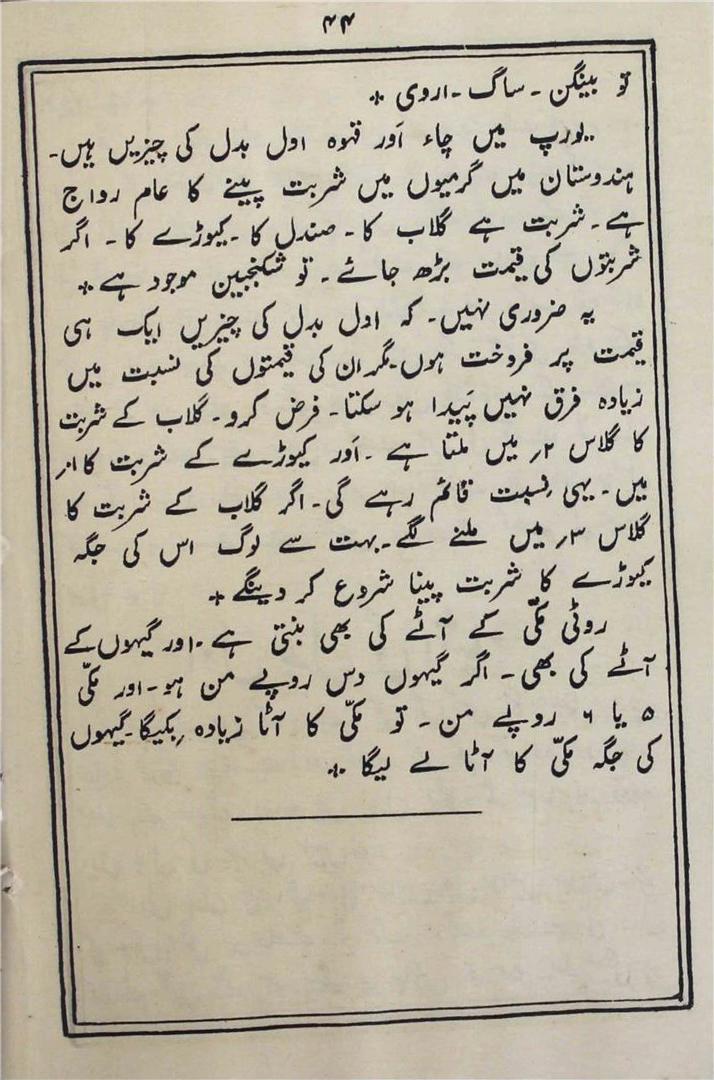 ۴۴
تو بینگن - ساگ - اروی ٭
یورپ میں چاء اَور قہوہ اول بدل کی چیزیں ہیں -
ہندوستان میں گرمیوں میں شربت پینے کا عام رواج
ہے - شربت ہے گلاب کا - صندل کا - کیوڑے کا - اگر
شربتوں کی قیمت بڑھ جائے - تو شکنجبین موجود ہے ٭
یہ ضروری نہیں - کہ اول بدل کی چیزیں ایک ہی
قیمت پر فروخت ہوں - مگر ان کی قیمتوں کی نسبت میں
زیادہ فرق نہیں پَیدا ہو سکتا - فرض کرو - گلاب کے شربت
کا گلاس ۲؍ میں ملتا ہے - اَور کیوڑے کے شربت کا ۱؍
میں - یہی نِسبت قائم رہے گی - اگر گلاب کے شربت کا
گلاس ۳؍ میں ملنے لگے - بہت سے لوگ اس کی جگہ
کیوڑے کا شربت پینا شروع کر دینگے ٭
روٹی مکّی کے آٹے کی بھی بنتی ہے - اور گیہوں کے
آٹے کی بھی - اگر گیہوں دس روپے من ہو - اور مکّی
۵ یا ۶ روپے من - تو مکّی کا آٹا زیادہ بِکیگا - گیہوں
کی جگہ مکّی کا آٹا لے لیگا ٭